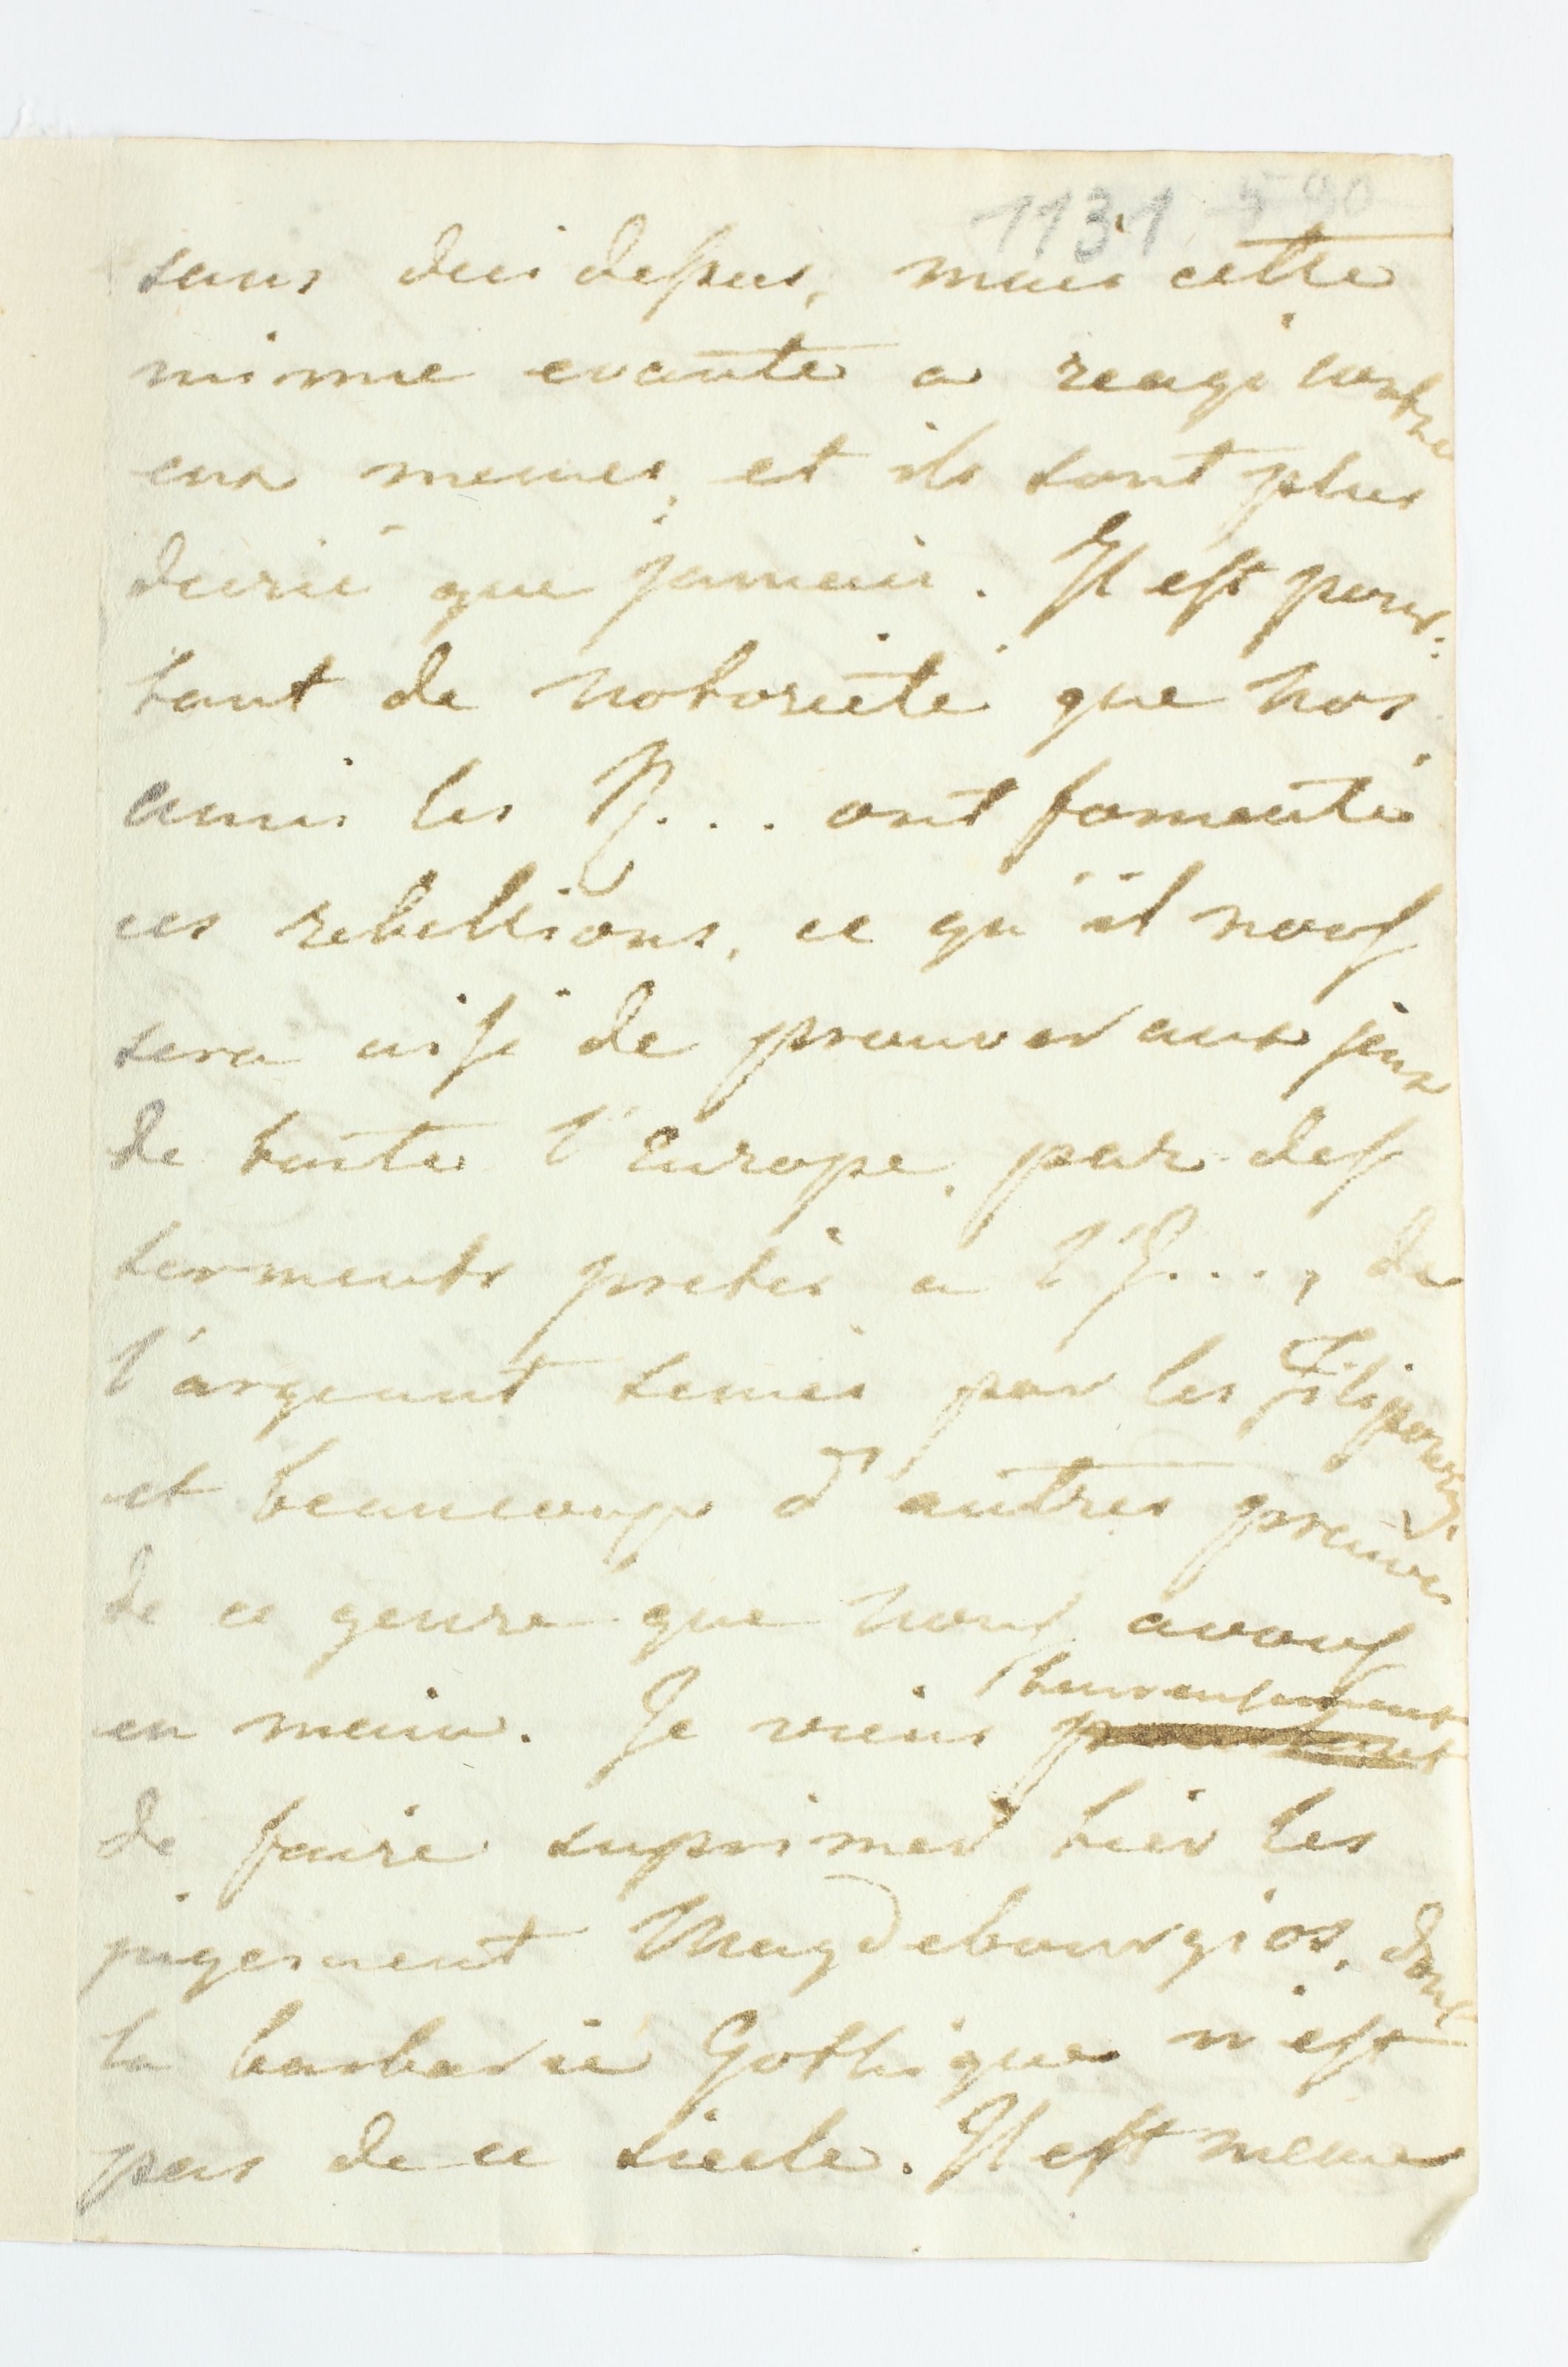 1131 590
sans dessus, mais cette
meme cruauté a reagi contre
eux memes, et ils sont plus
que jamais. Il est pour-
tant de notorieté que nos
amis les R... ont fomenté
ces rebellions, ce qu'il nous
sera aisé de prouver aux jeux
de toute l'Europe, par des
serments pretés a l'I...., de
l'argent semés par les Filipons,
et beaucoup d'autres preuves
de ce genre que nous avons
en main. Je viens heureusement pourtant
de faire suprimer hier les
jugement Magdebourgios, dont
la barbarie Gothique n'est
pas de ce siecle. Il est meme